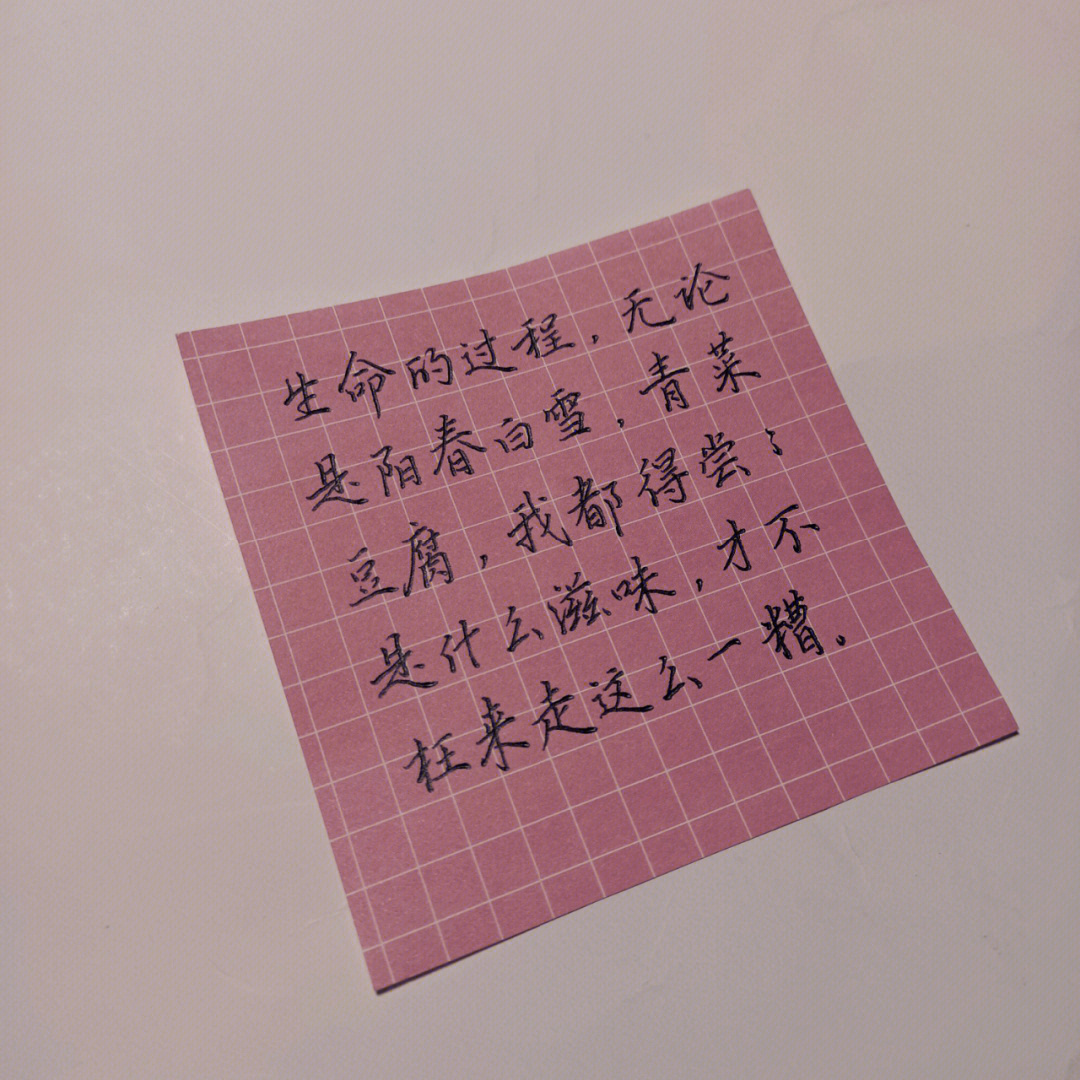 生命的过程，无论
是阳春白雪，青菜
豆腐，我都得尝尝
是什么滋味，才不
枉来走这么一糟。